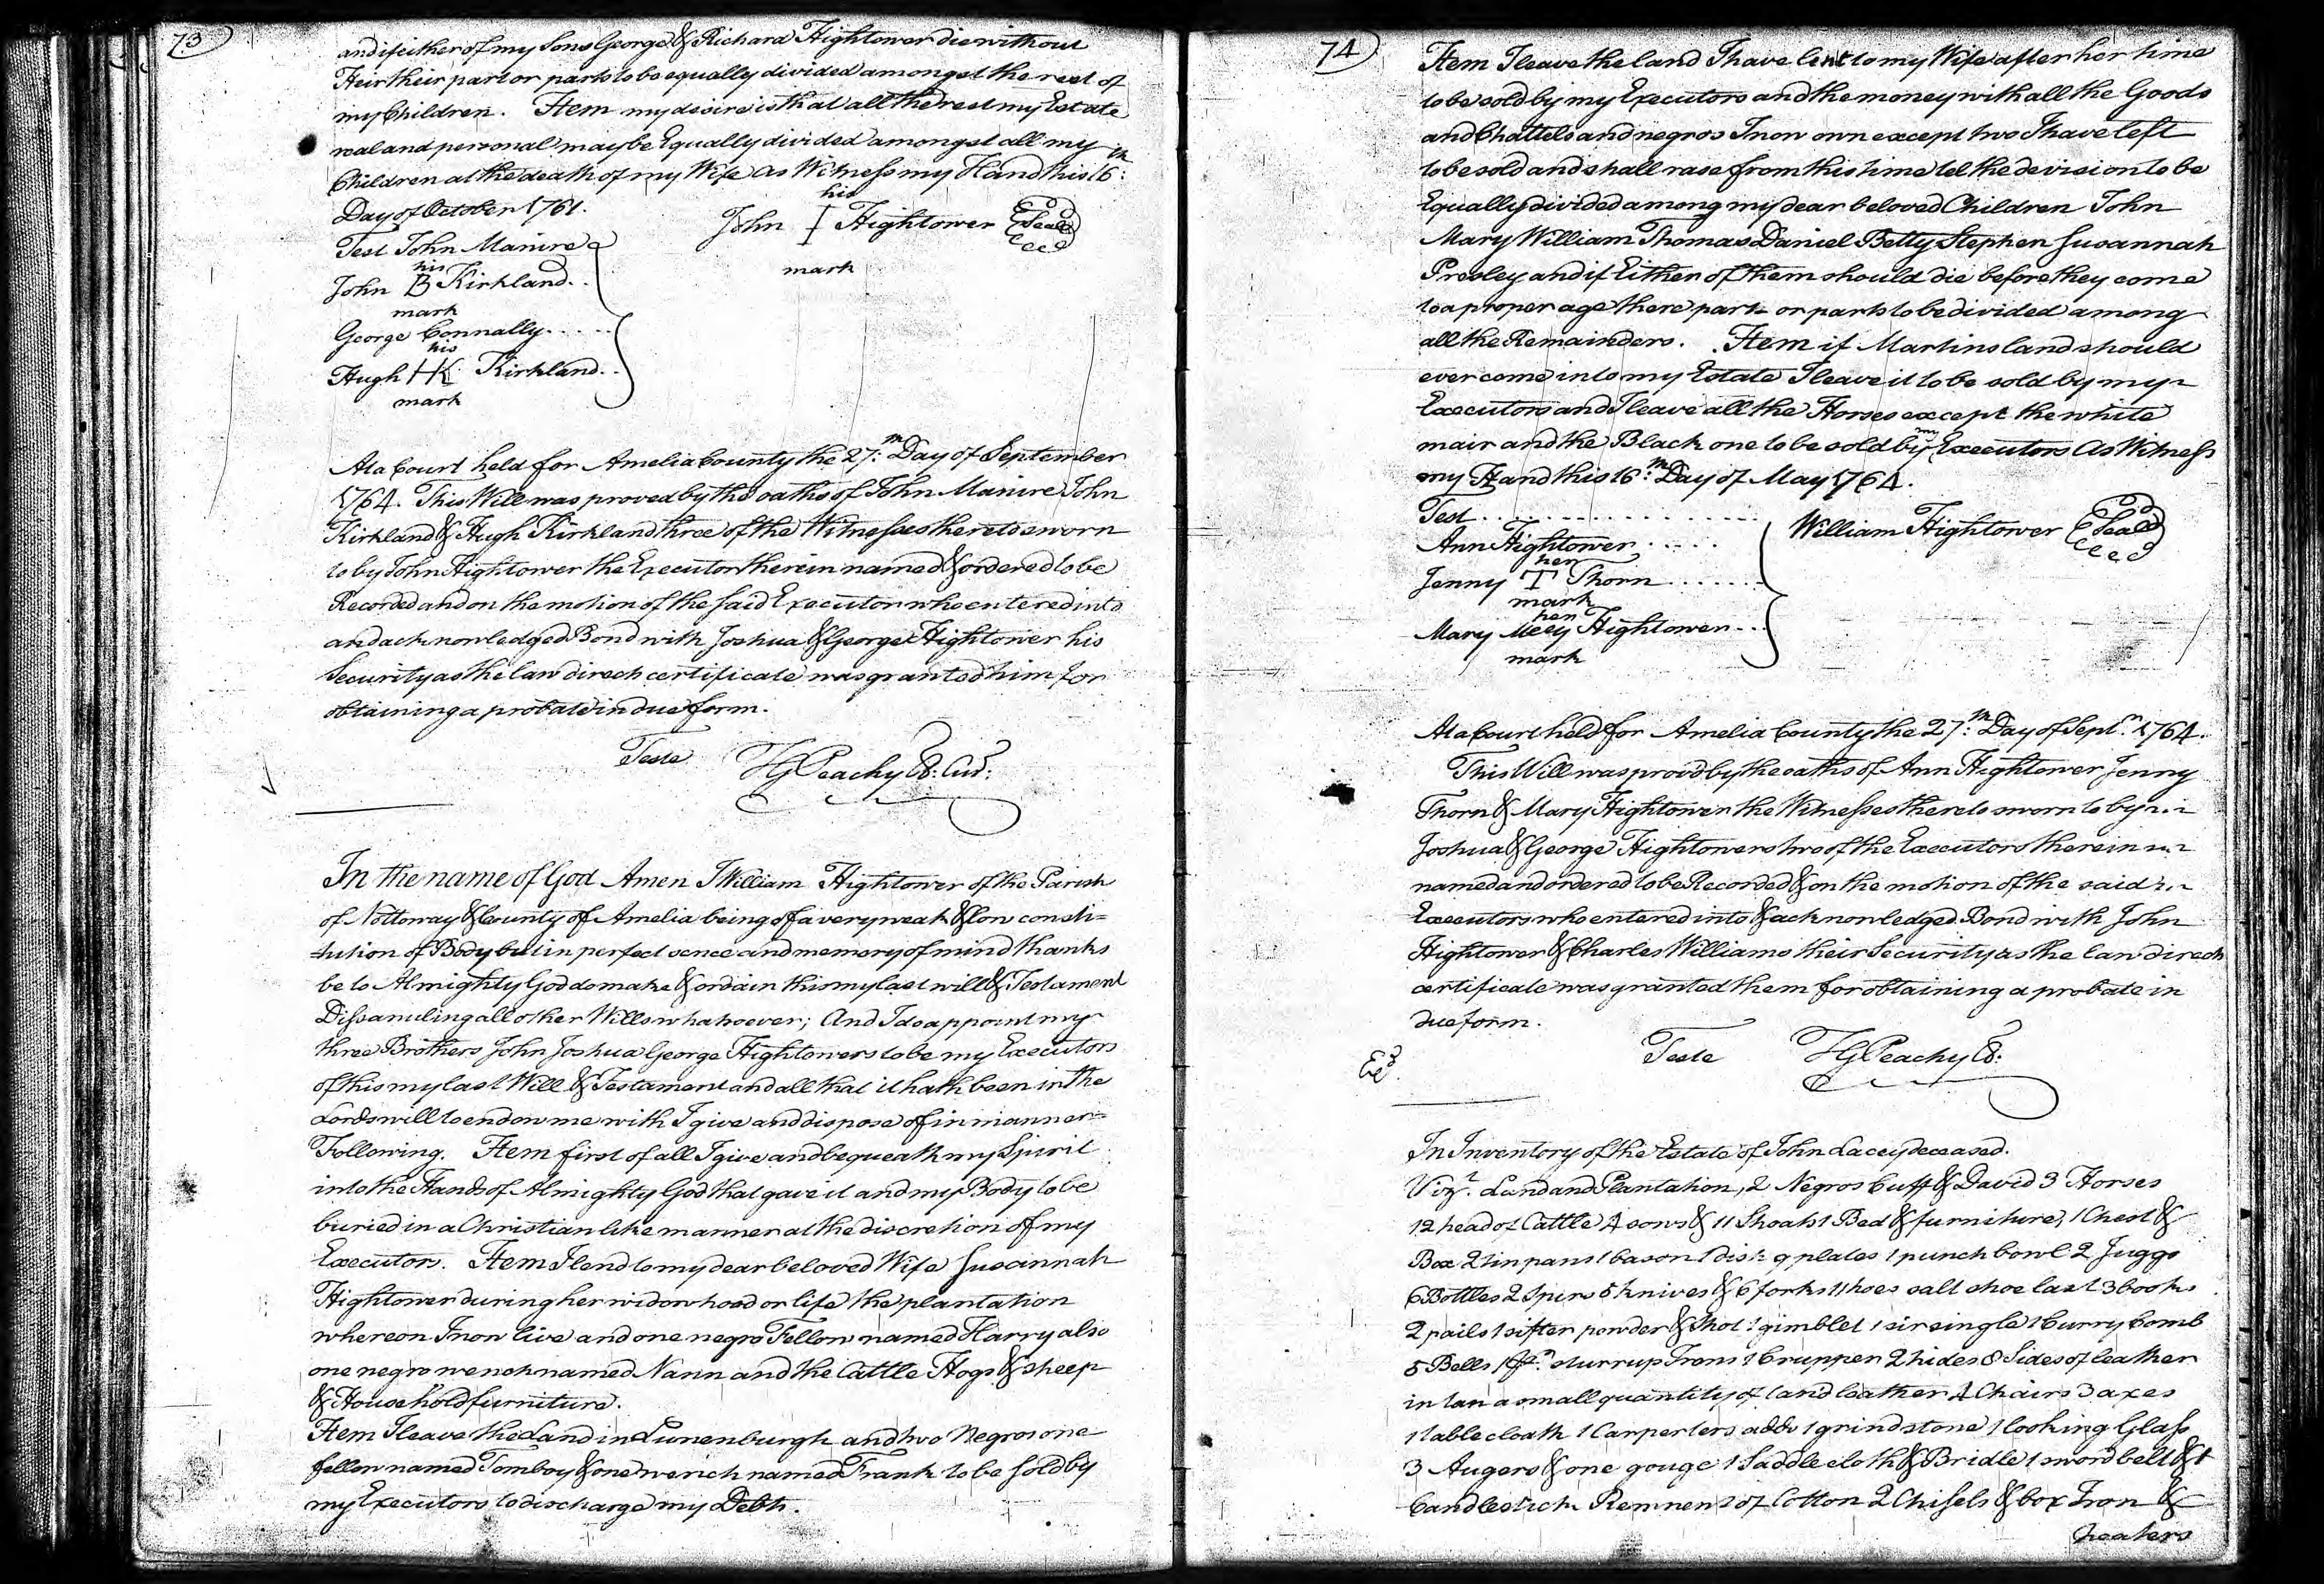 73
and if either of my Sons George & Richard Hightower die without
Heir their part or parts to be equally divided amongst the rest of
my Children. Item my desire is that all the rest my Estate
real and personal may be Equally divided amongst all my
Children at the death of my Wife As Witness my Hand this 16th
Day of October 1761.
his
John I Hightower Seal
mark
Test John Manire
his
John B Kirkland..
mark
George Connally.....
his
Hugh HK Kirkland..
mark
At a Court held for Amelia County the 27th Day of September
1764. This Will was proved by the oaths of John Manire John
Kirkland & Hugh Kirkland three of the Witnesses thereto sworn
to by John Hightower the Executor therein named & ordered to be
Recorded and on the motion of the said Executor who entered into
and acknowledged Bond with Joshua & George Hightower his
Security as the law direch certificate was granted him for
obtaining a probate in due form.
Teste HGPeachy Cl: Cur:
In the name of God Amen I William Hightower of the Parish
of Nottoway & County of Amelia being of a very weak & low consti=
tution of Body but in perfect sence and memory of mind thanks
be to Almighty God do make & ordain this my last will & Testament
Dissanuling all other Wills whatsoever; And I do appoint my
three Brothers John Joshua George Hightowers to be my Executors
of this my last Will & Testament and all that it hath been in the
Lords will to endow me with I give and dispose of in manner
Following. Item first of all I give and bequeath my Spirit
into the Hands of Almighty God that gave it and my Body to be
buried in a Christian like manner at the discretion of my
Executors. Item I lend to my dear beloved Wife Susannah
Hightower during her widowhood or life the plantation
whereon I now live and one negro Fellow named Harry also
one negro wench named Nann and the Cattle Hogs & sheep
& Household furniture.
Item I leave the Land in Lunenburgh and two Negros one
fellow named Tomboy & one wench named Frank to be sold by
my Executors to discharge my Debts.
74
Item I leave the land I have lent to my Wife after her time
to be sold by my Executors and the money with all the Goods
and Chattels and negros I now own except two I have left
to be sold and shall rase from this time tel the devision to be
Equally divided among my dear beloved Children John
Mary William Thomas Daniel Betty Stephen Susannah
Presley and if Either of them should die before they come
to a proper age there part or parts to be divided among
all the Remainders. Item if Martins land should
ever come into my Estate I leave it to be sold by my
Executors and I leave all the Horses except the white
mair and the Black one to be sold by my Executors As Witness
my Hand this 16th Day of May 1764.
Test
William Hightower Seal
Ann Hightower.....
her
Jenny T Thorn.......
mark
her
Mary Meey Hightower...
mark
At a Court held for Amelia County the 27th Day of Sept. 1764.
This Will was provd by the oaths of Ann Hightower Jenny
Thorn & Mary Hightower the Witnesses thereto sworn to by
Joshua & George Hightowers two of the Executors therein
named and ordered to be Recorded & on the motion of the said
Executors who entered into & acknowledged Bond with John
Hightower & Charles Williams their Security as the law direch
certificate was granted them for obtaining a probate in
due form.
Teste HGPeachy Cl:
In Inventory of the Estate of John Lacey deceased.
Vizt. Land and Plantation, 2 Negros Cuff & David 3 Horses
12 head of Cattle 4 sows & 11 Shoats 1 Bed & furniture, 1 Chest &
Box 2 tin pans 1 bason 1 dish 9 plates 1 punch bowl 2 Juggs
6 Bottles 2 Spurs 5 knives & 6 forks 11 hoes salt shoe last 3 books
2 pails 1 sifter powder & Shot 1 gimblet 1 sirsingle 1 Curry Comb
5 Bells 1 pr. sturrup Irons 1 Crupper 2 hides 8 Sides of leather
in tan a small quantity of tand leather 4 Chairs 3 axes
1 table cloath 1 Carpenters adds 1 grindstone 1 looking Glass
3 Augers & one gouge 1 Saddle cloth & Bridle 1 sword belt & 1
Candlestick Remnent of Cotton 2 Chissels & box Iron &
heaters